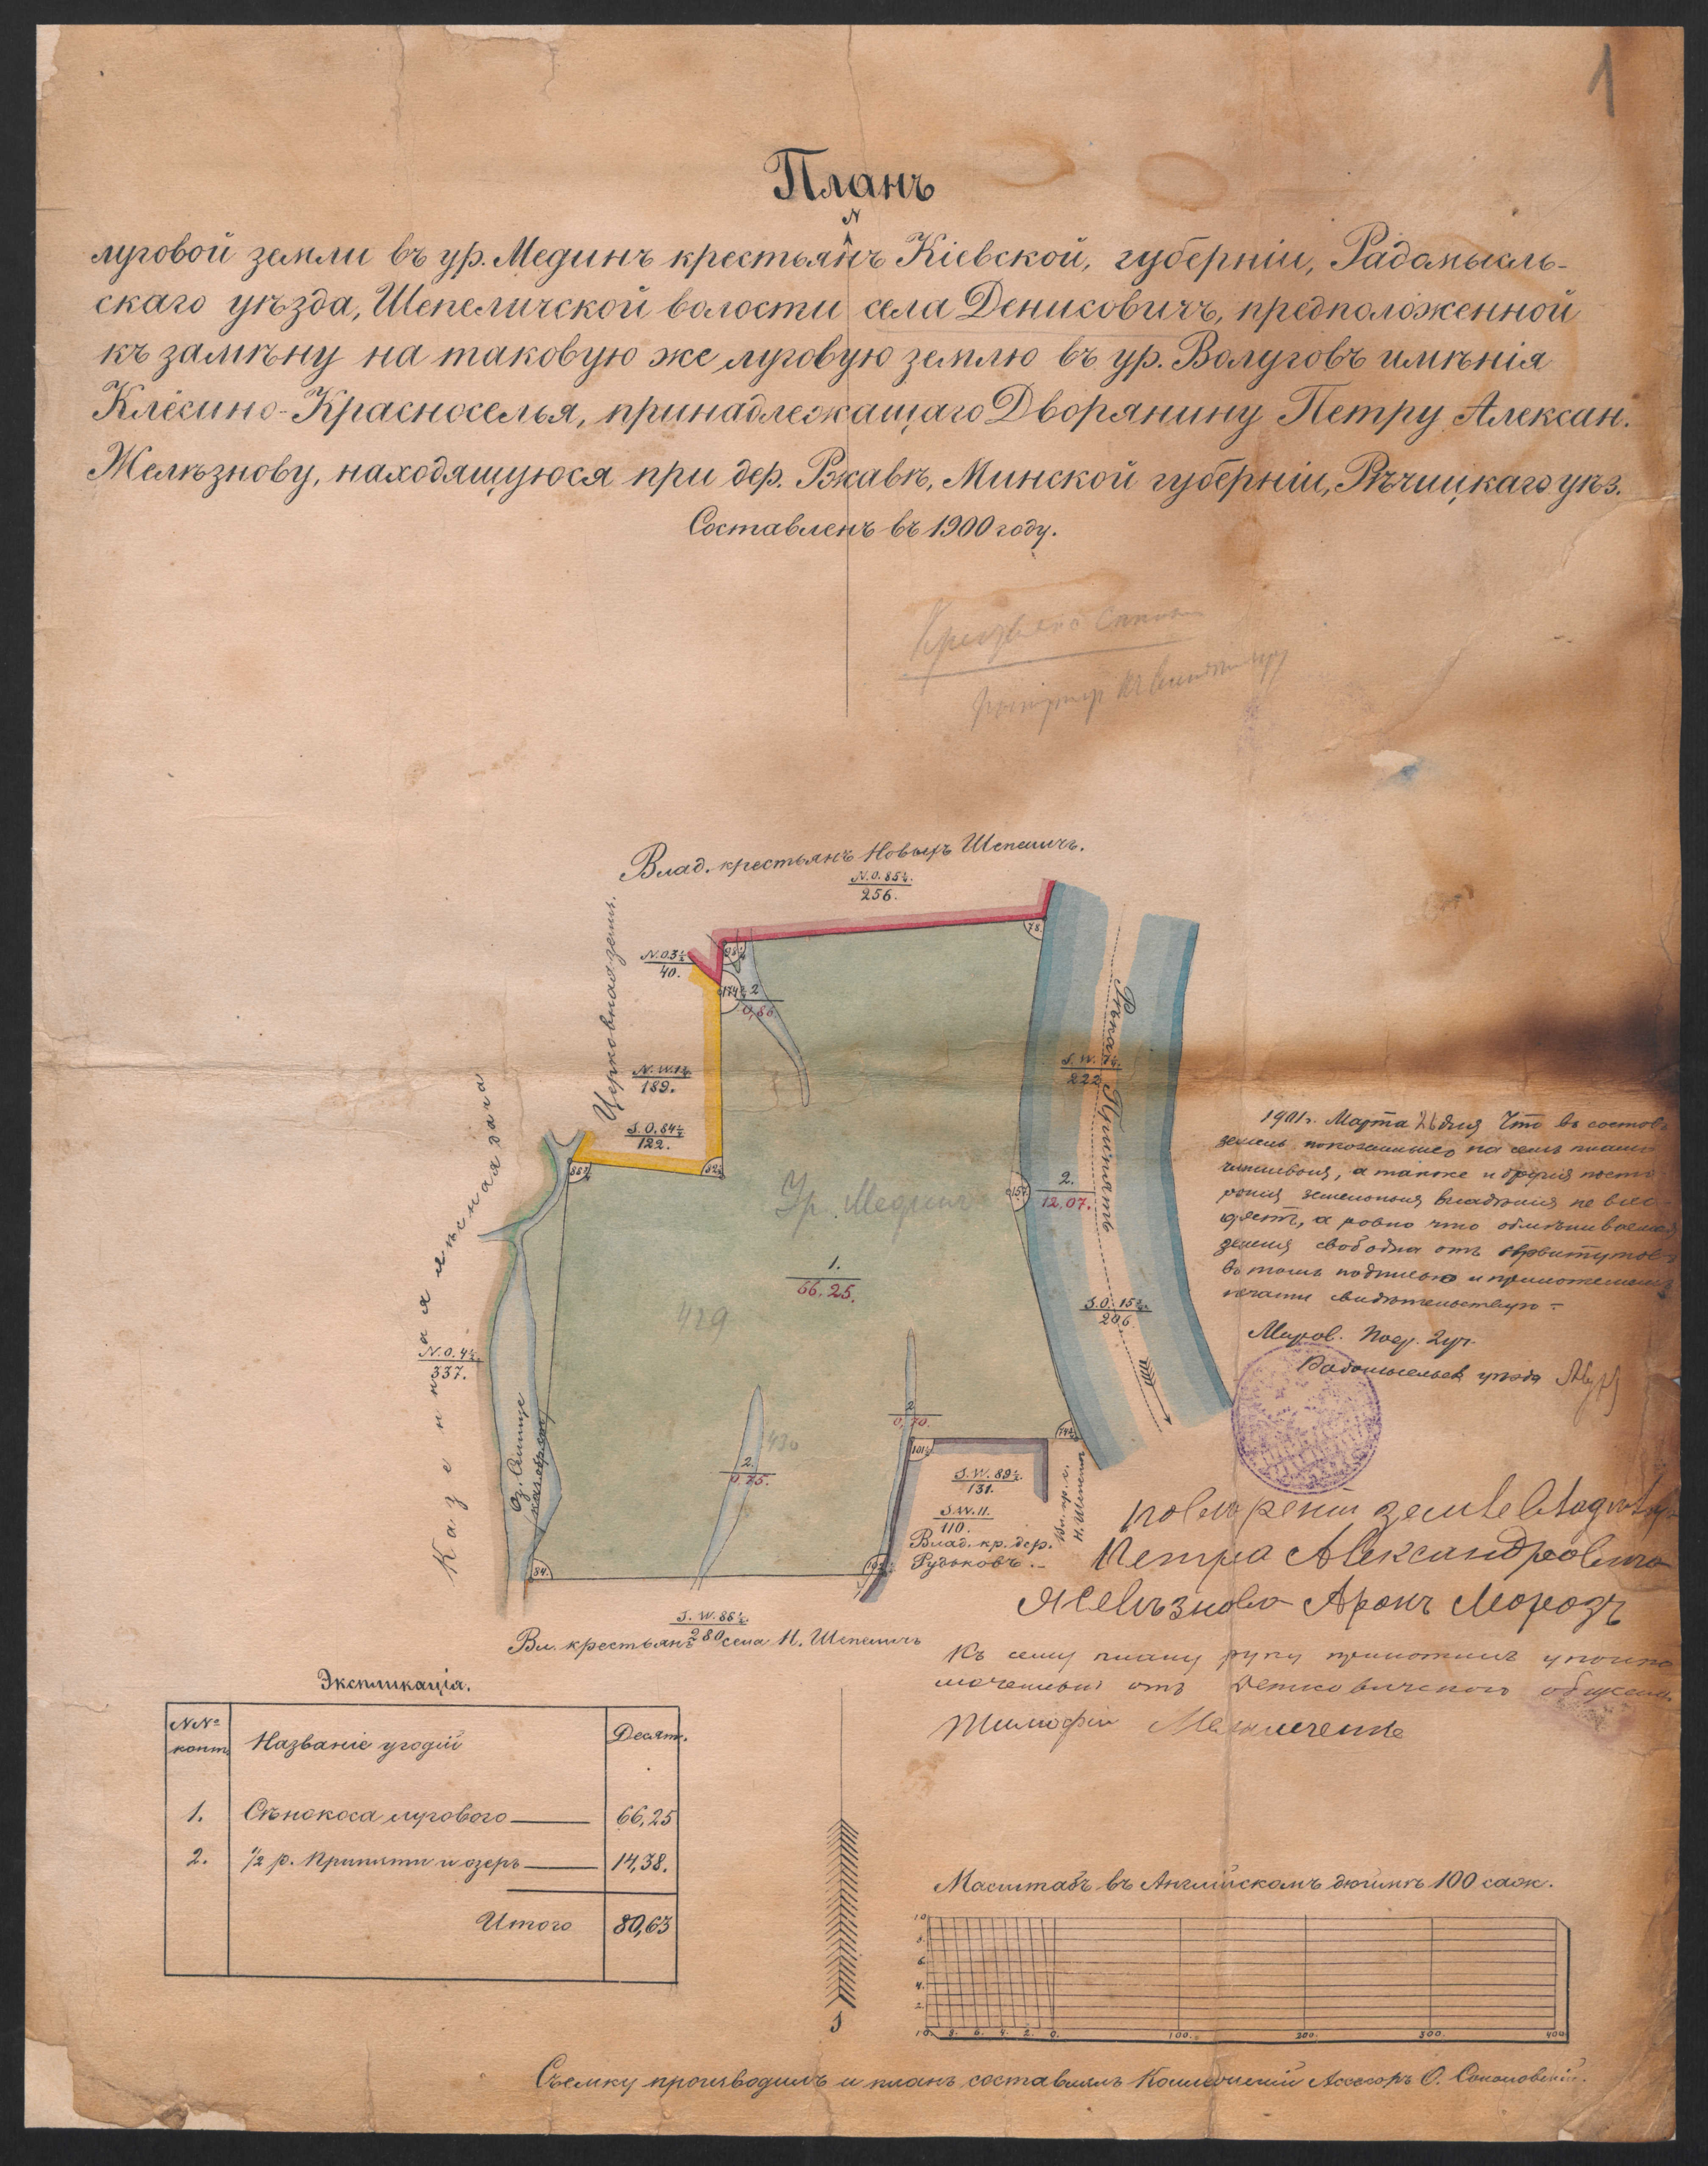 1
Планъ
N
луговой земли въ ур. Мединъ крестьянъ Кіевской, губерніи, Радомысль-
скаго уѣзда, Шепеличской волости села Денисовичъ, предположенной
къ замѣну на таковую же луговую землю въ ур. Волуговъ имѣнія
Клёсино-Красноселья, принадлежащаго Дворянину Петру Алексан.
Желѣзнову, находящуюся при дер. Ржавкѣ, Минской губерніи, Рѣчицкаго уѣз.
Составленъ въ 1900 году.
Влад. крестьянъ Новыхъ Шепеличъ.
N.O. 85¼.
256.
Церковная земл.
78.
N.O. 3½
40.
174½
2
0,86
N.W. 1¼
189.
S.O. 84½
122.
82¾
88¾
Казенная лѣсная дача
Рѣка Припять
S.W. 7¼.
222
157
2.
12,07.
Ур. Мединъ
1.
66,25.
429
S.O. 15¾.
296
N.O. 4¼
337.
Оз. Селище
2
0,70.
430
2.
0,75.
101½
74¾
S.W. 89¼.
131.
S.W. 11.
110.
Влад. кр. дер.
Рудьковъ.
Вл. кр. с.
Н. Шепелич
84.
S.W. 86¼.
280
Вл. крестьянъ села Н. Шепеличъ
1901 г. Марта 26 дня Что въ составъ
земель показанныхъ на семъ планѣ
чиншевыя, а также и другія посто
ронія земельныя владѣнія не вхо
дятъ, а ровно что обмѣниваемая
земля свободна отъ сервитутовъ
въ томъ подписью и приложеніемъ
печати свидѣтельствую –
Миров. Поср. 2 уч.
Радомысльск уѣзда
повѣреный землевладѣльца
Петра Александровича
Желѣзнова Аронъ Морозъ
Къ сему плану руку приложилъ уполно
моченный отъ общества
Тимофій
Экспликація.
NNº
конт.
Названіе угодій
Десят.
1. Сѣнокоса лугового 66,25
2. ½ р. Припяти и озеръ 14,38.
Итого 80,63
S
Масштабъ въ Англійскомъ дюймѣ 100 саж.
10
8.
6.
4.
2.
10. 8. 6. 4. 2. 0. 100. 200. 300. 400
Съемку производилъ и планъ составилъ Коллежскій Ассесоръ О. Соколовскій.